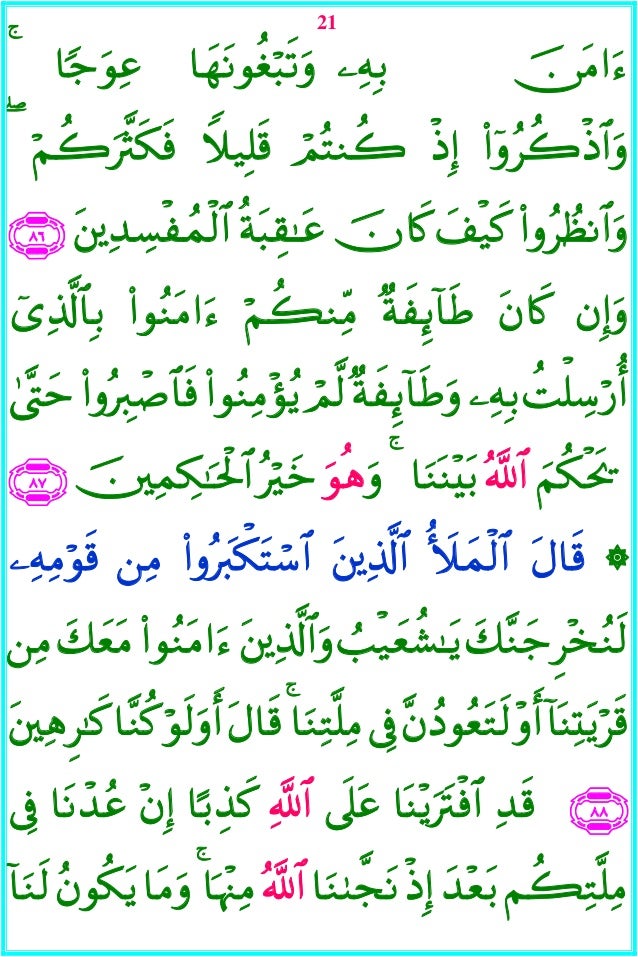 21
ءَامَنَ بِهِۦ وَتَبْغُونَهَا عِوَجًا ۚ
وَٱذْكُرُوٓا۟ إِذْ كُنتُمْ قَلِيلًا فَكَثَّرَكُمْ ۖ
وَٱنظُرُوا۟ كَيْفَ كَانَ عَـٰقِبَةُ ٱلْمُفْسِدِينَ ٨٦
وَإِن كَانَ طَآئِفَةٌ مِّنكُمْ ءَامَنُوا۟ بِٱلَّذِىٓ
أُرْسِلْتُ بِهِۦ وَطَآئِفَةٌ لَّمْ يُؤْمِنُوا۟ فَٱصْبِرُوا۟ حَتَّىٰ
يَحْكُمَ ٱللَّهُ بَيْنَنَا ۚ وَهُوَ خَيْرُ ٱلْحَـٰكِمِينَ ٨٧
۞ قَالَ ٱلْمَلَأُ ٱلَّذِينَ ٱسْتَكْبَرُوا۟ مِن قَوْمِهِۦ
لَنُخْرِجَنَّكَ يَـٰشُعَيْبُ وَٱلَّذِينَ ءَامَنُوا۟ مَعَكَ مِن
قَرْيَتِنَآ أَوْ لَتَعُودُنَّ فِى مِلَّتِنَا ۚ قَالَ أَوَلَوْ كُنَّا كَـٰرِهِينَ
٨٨ قَدِ ٱفْتَرَيْنَا عَلَى ٱللَّهِ كَذِبًا إِنْ عُدْنَا فِى
مِلَّتِكُم بَعْدَ إِذْ نَجَّىٰنَا ٱللَّهُ مِنْهَا ۚ وَمَا يَكُونُ لَنَآ